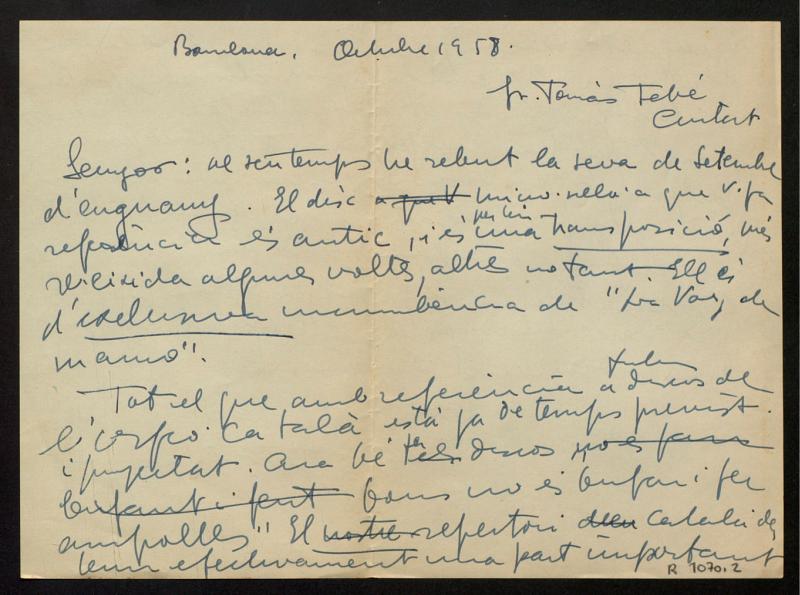 Barcelona. Octubre 1958.
Sr. Tomàs Tebé
Ciutat
Senyor: al seu temps he rebut la seva de Setembre
d'enguany. El disc a que V. micro-rella a que V. fa
referència és antic, i és per tan una transposició, més
reeixida algunes voltes, altres no tant. Ell és
d'exclusiva incumbència de "La Voz de
su amo".
Tot el que amb referència a futurs discos de
l'Orfeó Català està ja de temps previst
i projectat. Ara bé fer discos no és fan
bufant i fent bons no és bufar i fer
ampolles" El nostre repertori deu català de
tenim efectivament una part important
R. 1070.2